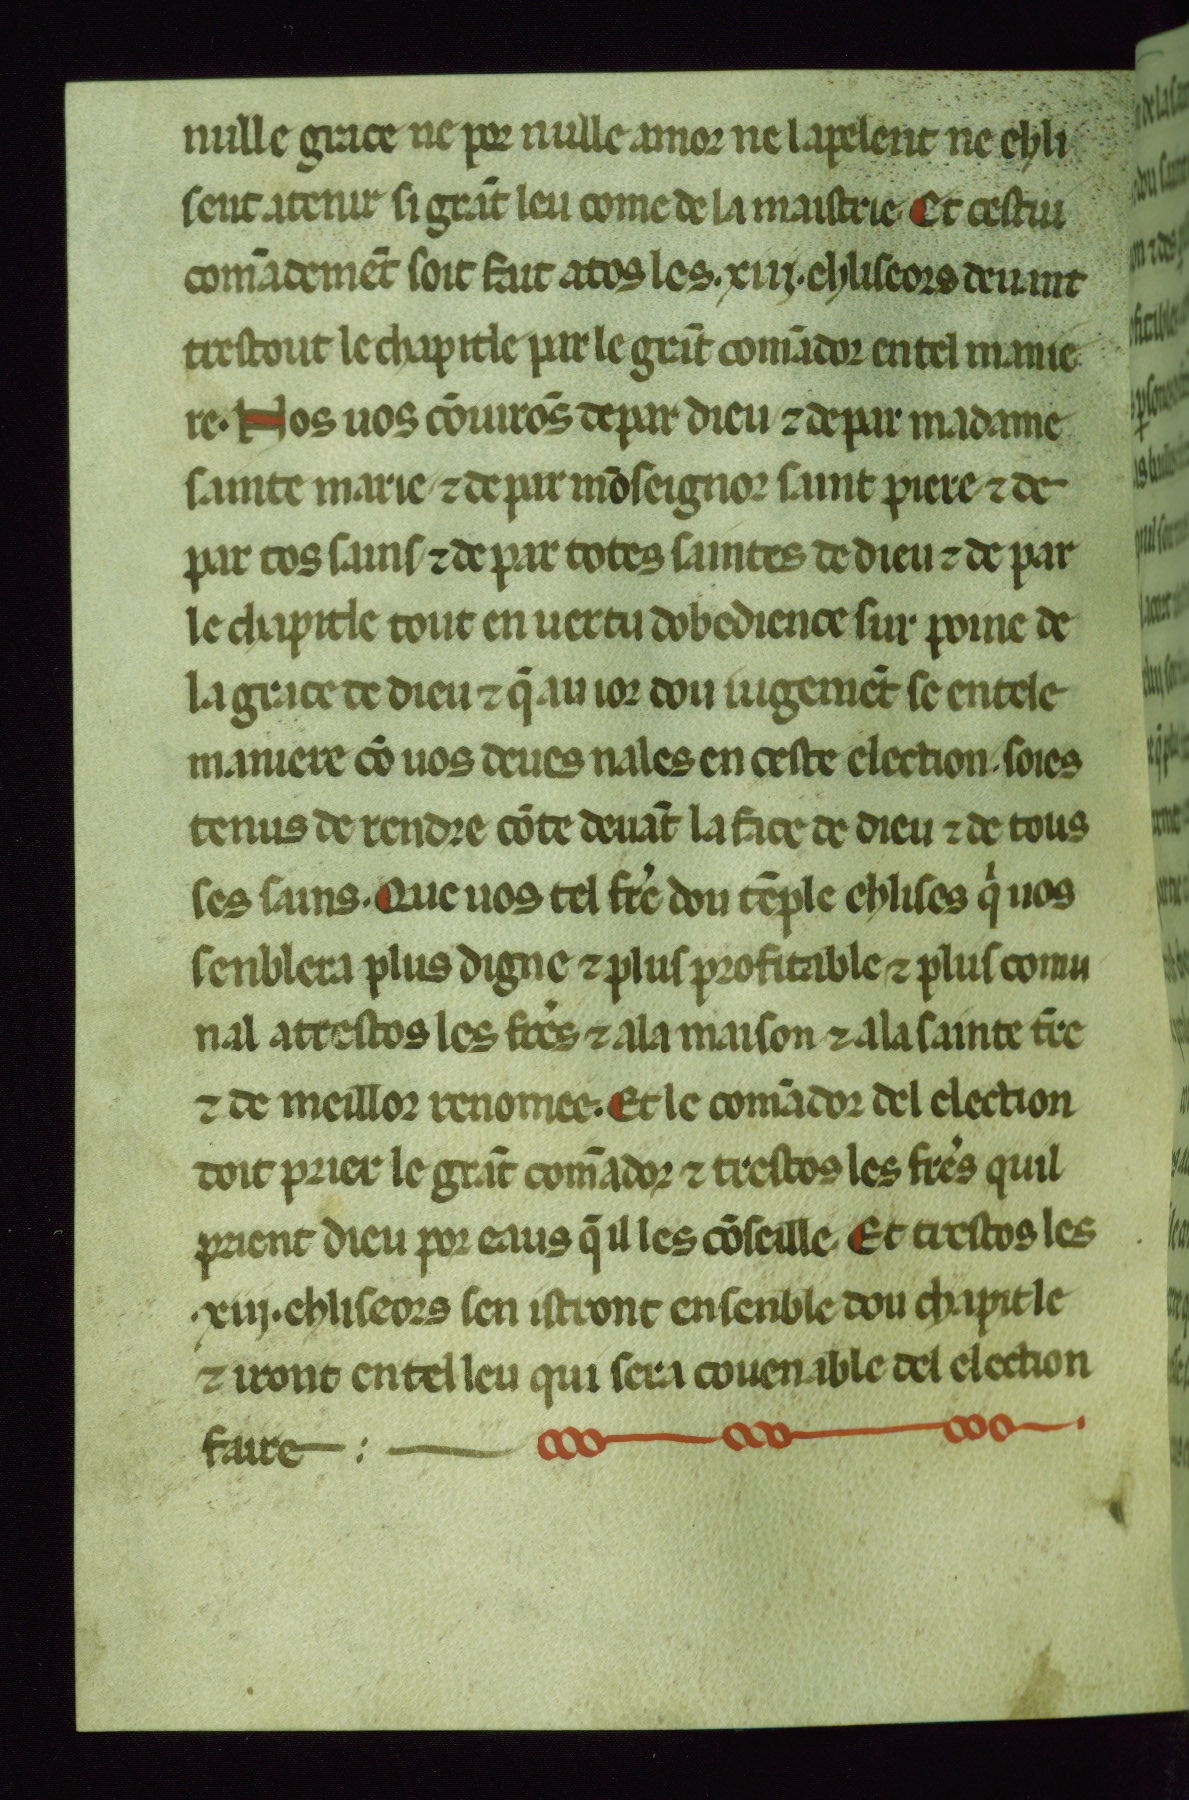 nulle grace ne por nulle amor ne lapelent ne ehli
sent atenir si grāt leu come de la maistrie. Et cestui
comādemēt soit fait atos les .xiij. ehliseors deuant
trestout le chapitle par le grāt comādor en tel manie
re. Nos uos cōiurōs depar dieu ⁊ depar madame
sainte marie ⁊ de par mōseignor saint piere ⁊ de
par tos sains ⁊ de par totes saintes de dieu ⁊ de par
le chapitle tout en uertu dobedience sur poine de
la grace de dieu ⁊ q̄ au ior dou iugemēt se en tele
maniere cō uos deues nales en ceste election. soies
tenus de rendre cōte deuāt la face de dieu ⁊ de tous
ses sains. Que uos tel fr̉e dou tēple ehlises qͥ uos
senblera plus digne ⁊ plus profitable ⁊ plus comu
nal atrestos les fr̉es ⁊ ala maison ⁊ ala sainte t̄re
⁊ de meillor renomee. Et le comādor del election
doit prier le grāt comādor ⁊ trestos les fr̉es quil
prient dieu por eaus q̄ il les cōseille. Et trestos les
.xiij. ehliseors sen istront ensenble dou chapitle
⁊ iront en tel leu qui sera couenable del election
faire :